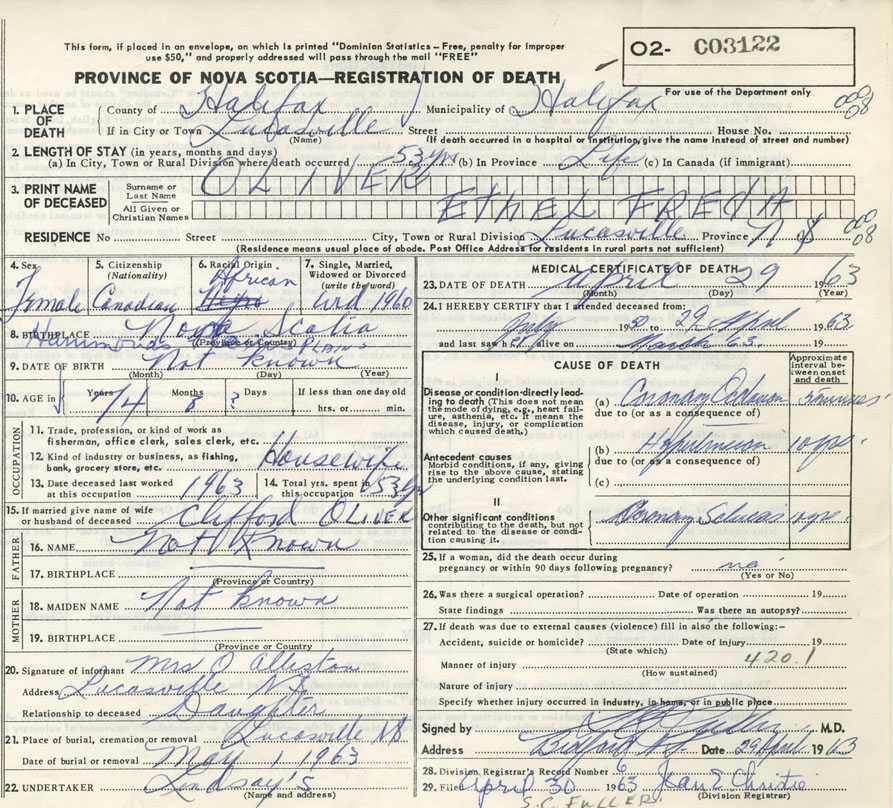 This form, if placed in an envelope, on which is printed "Dominion Statistics – Free, penalty for improper
use $50," and properly addressed will pass through the mail "FREE"
O2- C03122
For use of the Department only
PROVINCE OF NOVA SCOTIA—REGISTRATION OF DEATH
1. PLACE OF DEATH
County of Halifax Municipality of Halifax
If in City or Town Lucasville Street House No.
(Name) (If death occurred in a hospital or institution, give the name instead of street and number)
000
08
2. LENGTH OF STAY (in years, months and days)
(a) In City, Town or Rural Division where death occurred 53 yrs (b) In Province Life (c) In Canada (if immigrant)
3. PRINT NAME OF DECEASED
Surname or Last Name OLIVER
All Given or Christian Names ETHEL FREDA
RESIDENCE No Street City, Town or Rural Division Lucasville Province N S
000
08
(Residence means usual place of abode. Post Office Address for residents in rural parts not sufficient)
4. Sex Female
5. Citizenship (Nationality) Canadian
6. Racial Origin African Negro
7. Single, Married, Widowed or Divorced (write the word) Wid 1960
8. BIRTHPLACE Nova Scotia
Hammonds PLAINS
(Province or Country)
9. DATE OF BIRTH Not Known
(Month) (Day) (Year)
10. AGE in Years 74 Months 8 Days ? If less than one day old
hrs. or min.
OCCUPATION
11. Trade, profession, or kind of work as fisherman, office clerk, sales clerk, etc.
12. Kind of industry or business, as fishing, bank, grocery store, etc. Housewife
13. Date deceased last worked at this occupation 1963
14. Total yrs. spent in this occupation 53 yrs
15. If married give name of wife or husband of deceased Clifford OLIVER
FATHER
16. NAME Not Known
17. BIRTHPLACE
(Province or Country)
MOTHER
18. MAIDEN NAME Not Known
19. BIRTHPLACE
(Province or Country)
20. Signature of informant Mrs O
Address Lucasville N.S.
Relationship to deceased Daughter
21. Place of burial, cremation or removal Lucasville NS
Date of burial or removal May 1 1963
22. UNDERTAKER Lindsay's
(Name and address)
MEDICAL CERTIFICATE OF DEATH
23. DATE OF DEATH April 29 1963
(Month) (Day) (Year)
24. I HEREBY CERTIFY that I attended deceased from:
July 1950 to 29 April 1963
and last saw her alive on March 63.
CAUSE OF DEATH
Approximate interval between onset and death
I
Disease or condition directly leading to death (This does not mean the mode of dying, e.g., heart failure, asthenia, etc. It means the disease, injury, or complication which caused death.)
(a) Coronary
due to (or as a consequence of)
Antecedent causes
Morbid conditions, if any, giving rise to the above cause, stating the underlying condition last.
(b) Hypertension 10 yrs.
due to (or as a consequence of)
(c)
II
Other significant conditions
contributing to the death, but not related to the disease or condition causing it.
Coronary 10 yrs.
25. If a woman, did the death occur during
pregnancy or within 90 days following pregnancy? no
(Yes or No)
26. Was there a surgical operation? Date of operation 19
State findings Was there an autopsy?
27. If death was due to external causes (violence) fill in also the following:-
Accident, suicide or homicide? Date of injury 19
(State which)
Manner of injury 420.1
(How sustained)
Nature of injury
Specify whether injury occurred in industry, in home, or in public place
Signed by M.D.
Address Bedford N.S. Date 29 April 1963
28. Division Registrar's Record Number 6
29. Filed April 30 1963 Jean E Christie
(Division Registrar)
S.C. FULLER